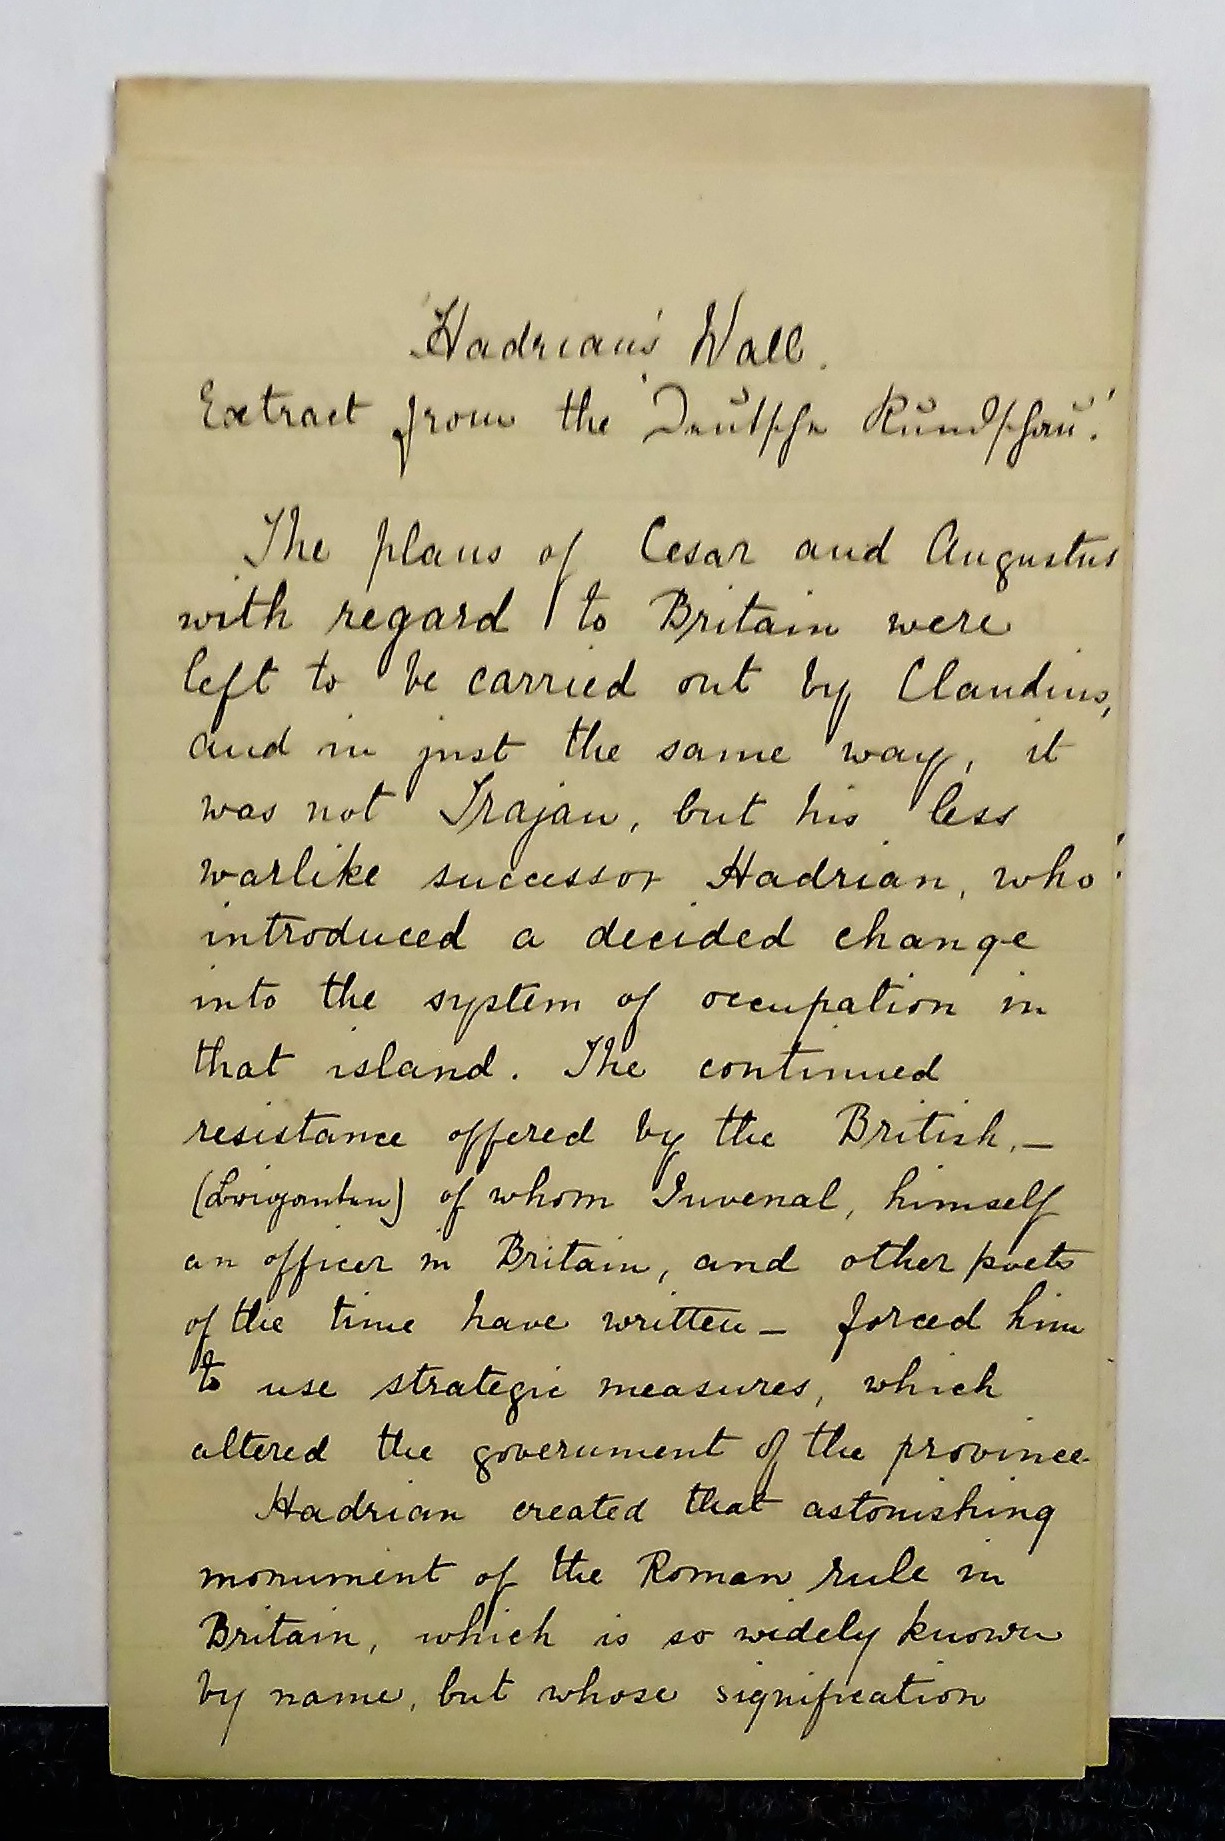 'Hadrian's Wall.
Extract from the 'Deutsche Rundschau'.
The plans of Cesar and Augustus
with regard to Britain were
left to be carried out by Claudius,
and in just the same way, it
was not Trajan, but his less
warlike successor Hadrian, who
introduced a decided change
into the system of occupation in
that island. The continued
resistance offered by the British, —
(Briganten) of whom Juvenal, himself
an officer in Britain, and other poets
of the time have written — forced him
to use strategic measures, which
altered the government of the province.
Hadrian created that astonishing
monument of the Roman rule in
Britain, which is so widely known
by name, but whose signification